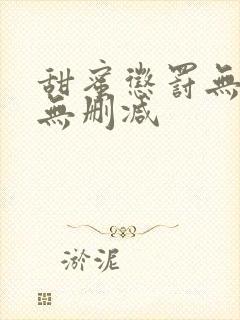 甜蜜懲罰無
無刪減
淤泥